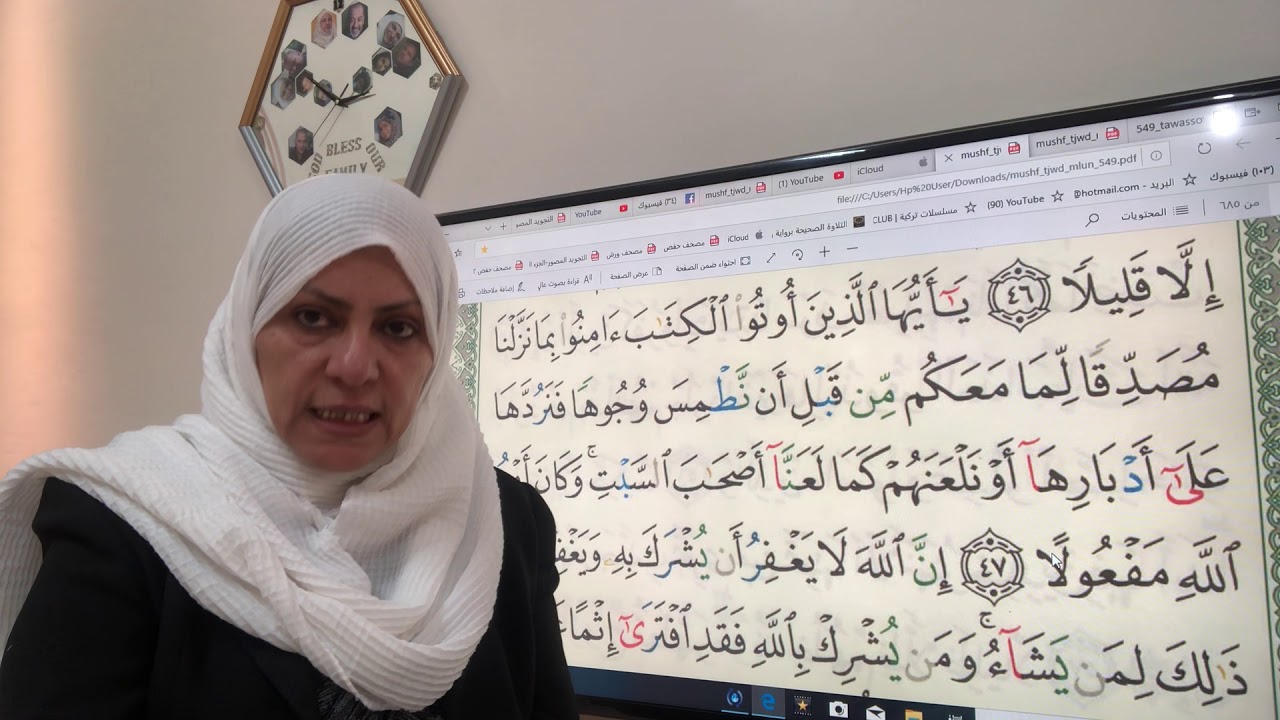 GOD BLESS OUR
FAMILY
549_tawasso
mushf_tjwd_
mushf_tj
iCloud
YouTube (1)
mushf_tjwd_
(٣٤) فيسبوك
YouTube
التجويد المصو
file:///C:/Users/Hp%20User/Downloads/mushf_tjwd_mlun_549.pdf
(١٠٣) فيسبوك
البريد - @hotmail.com
YouTube (90)
مسلسلات تركية | CLUB
التلاوة الصحيحة برواية
iCloud
مصحف حفص
مصحف ورش
التجويد المصور-الجزء اا
مصحف حفص ٢
من ٦٨٥
المحتويات
احتواء ضمن الصفحة
عرض الصفحة
قراءة بصوت عالٍ
إضافة ملاحظات
إِلَّا قَلِيلًا ٤٦ يَٰٓأَيُّهَا ٱلَّذِينَ أُوتُوا۟ ٱلْكِتَٰبَ ءَامِنُوا۟ بِمَا نَزَّلْنَا
مُصَدِّقًا لِّمَا مَعَكُم مِّن قَبْلِ أَن نَّطْمِسَ وُجُوهًا فَنَرُدَّهَا
عَلَىٰٓ أَدْبَارِهَآ أَوْ نَلْعَنَهُمْ كَمَا لَعَنَّآ أَصْحَٰبَ ٱلسَّبْتِ ۚ وَكَانَ
ٱللَّهِ مَفْعُولًا ٤٧ إِنَّ ٱللَّهَ لَا يَغْفِرُ أَن يُشْرَكَ بِهِۦ وَيَغْفِ
ذَٰلِكَ لِمَن يَشَآءُ ۚ وَمَن يُشْرِكْ بِٱللَّهِ فَقَدِ ٱفْتَرَىٰٓ إِثْمًا